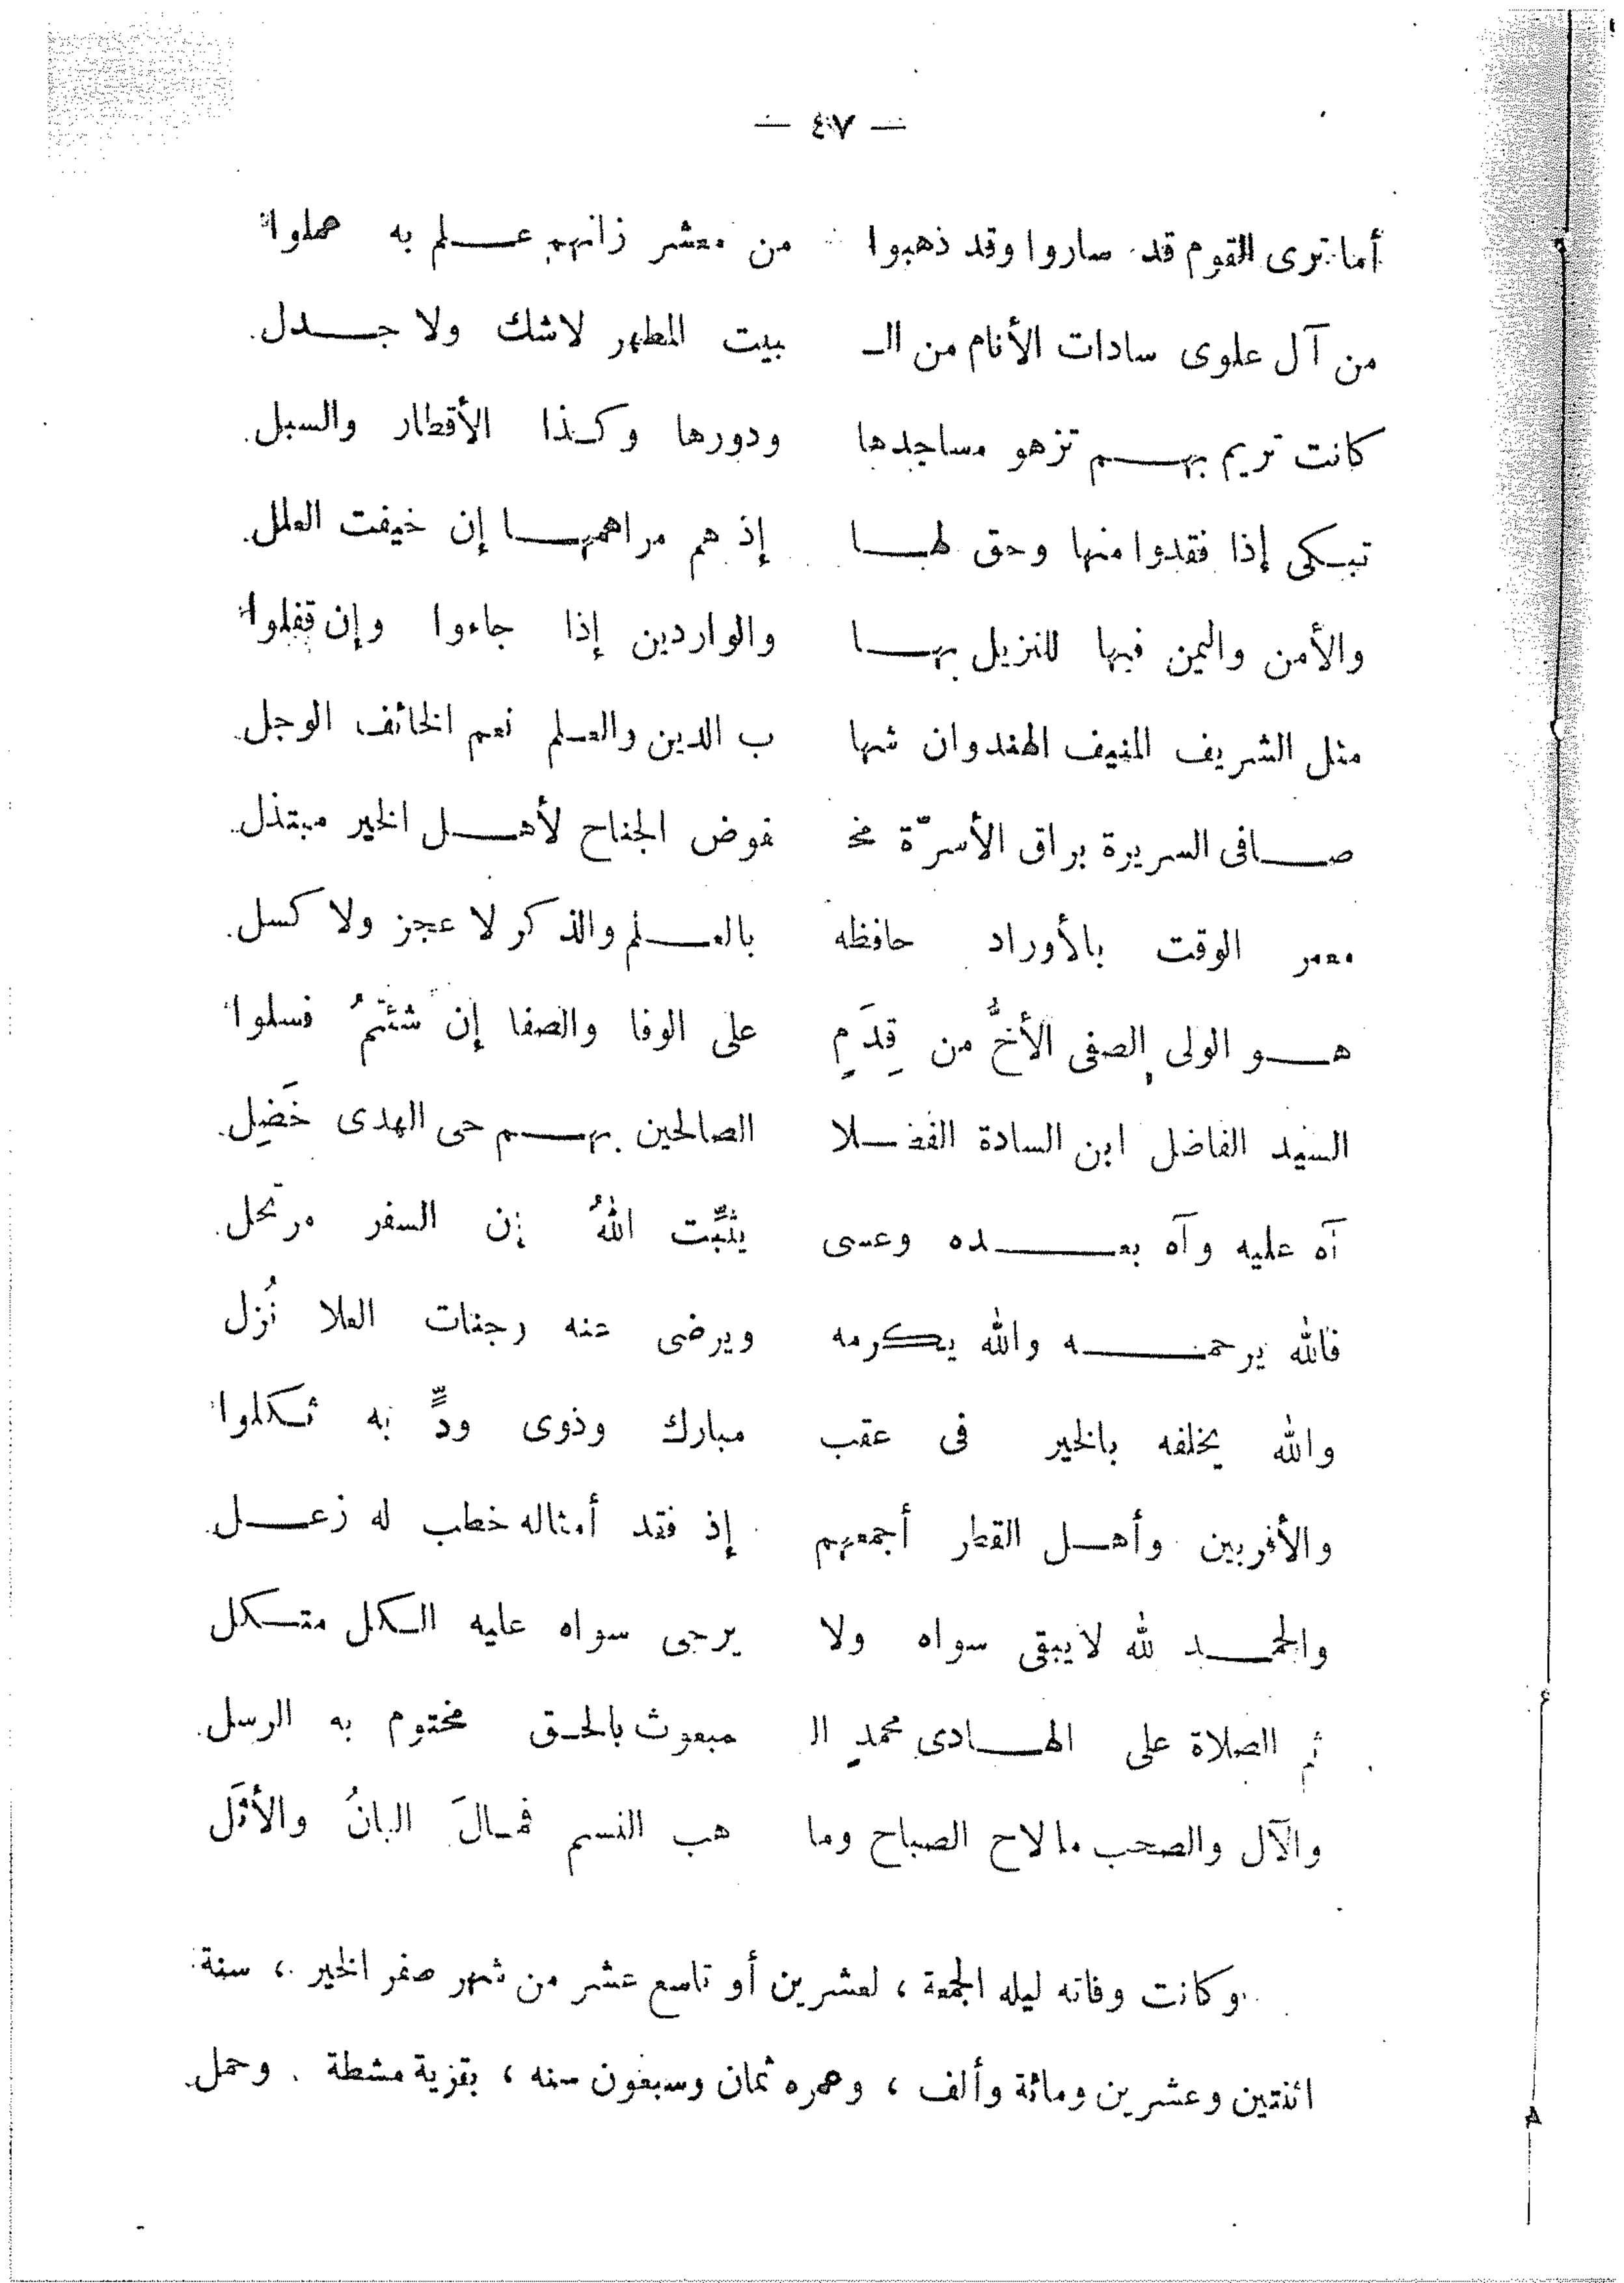 — ٤٠٧ —
أما ترى القوم قد ساروا وقد ذهبوا من معشر زانهم عـلم به عملوا
من آل علوى سادات الأنام من الـ ـبيت المطهر لاشك ولا جـدل
كانت تريم بهـم تزهو مساجدها ودورها وكـذا الأقطار والسبل
تبـكى إذا فقدوا منها وحق لهـا إذ هم مراهمهـا إن خيفت العلل
والأمن واليمن فيها للنزيل بهـا والواردين إذا جاءوا وإن قفلوا
مثل الشريف المنيف الهندوان شها ب الدين والعـلم نعم الخائف الوجل
صـافى السريرة براق الأسرّة مخـ ـفوض الجناح لأهـل الخير مبتذل
معمر الوقت بالأوراد حافظه بالعـلم والذكر لا عجز ولا كسل
هـو الولى الصفى الأخُّ من قِدَمٍ على الوفا والصفا إن شئتمُ فسلوا
السيد الفاضل ابن السادة الفضـلا الصالحين بهـم حى الهدى خَضِل
آه عليه وآه بعـده وعسى يثبِّت اللهُ إن السفر مرتحل
فالله يرحمـه والله يـكرمه ويرضى عنه وجنات العلا نُزل
والله يخلفه بالخير فى عقب مبارك وذوى ودٍّ به ثـكلوا
والأقربين وأهـل القطر أجمعهم إذ فقد أمثاله خطب له زعـل
والحمـد لله لايبقى سواه ولا يرجى سواه عليه الـكل متـكل
ثم الصلاة على الهـادى محمدٍ الـ ـمبعوث بالحـق مختوم به الرسل
والآل والصحب مالاح الصباح وما هب النسم فمـالَ البانُ والأثَل
وكانت وفاته ليله الجمعة ، لعشرين أو تاسع عشر من شهر صفر الخير ، سنة
اثنتين وعشرين ومائة وألف ، وعمره ثمان وسبعون سنه ، بقرية مشطة . وحمل